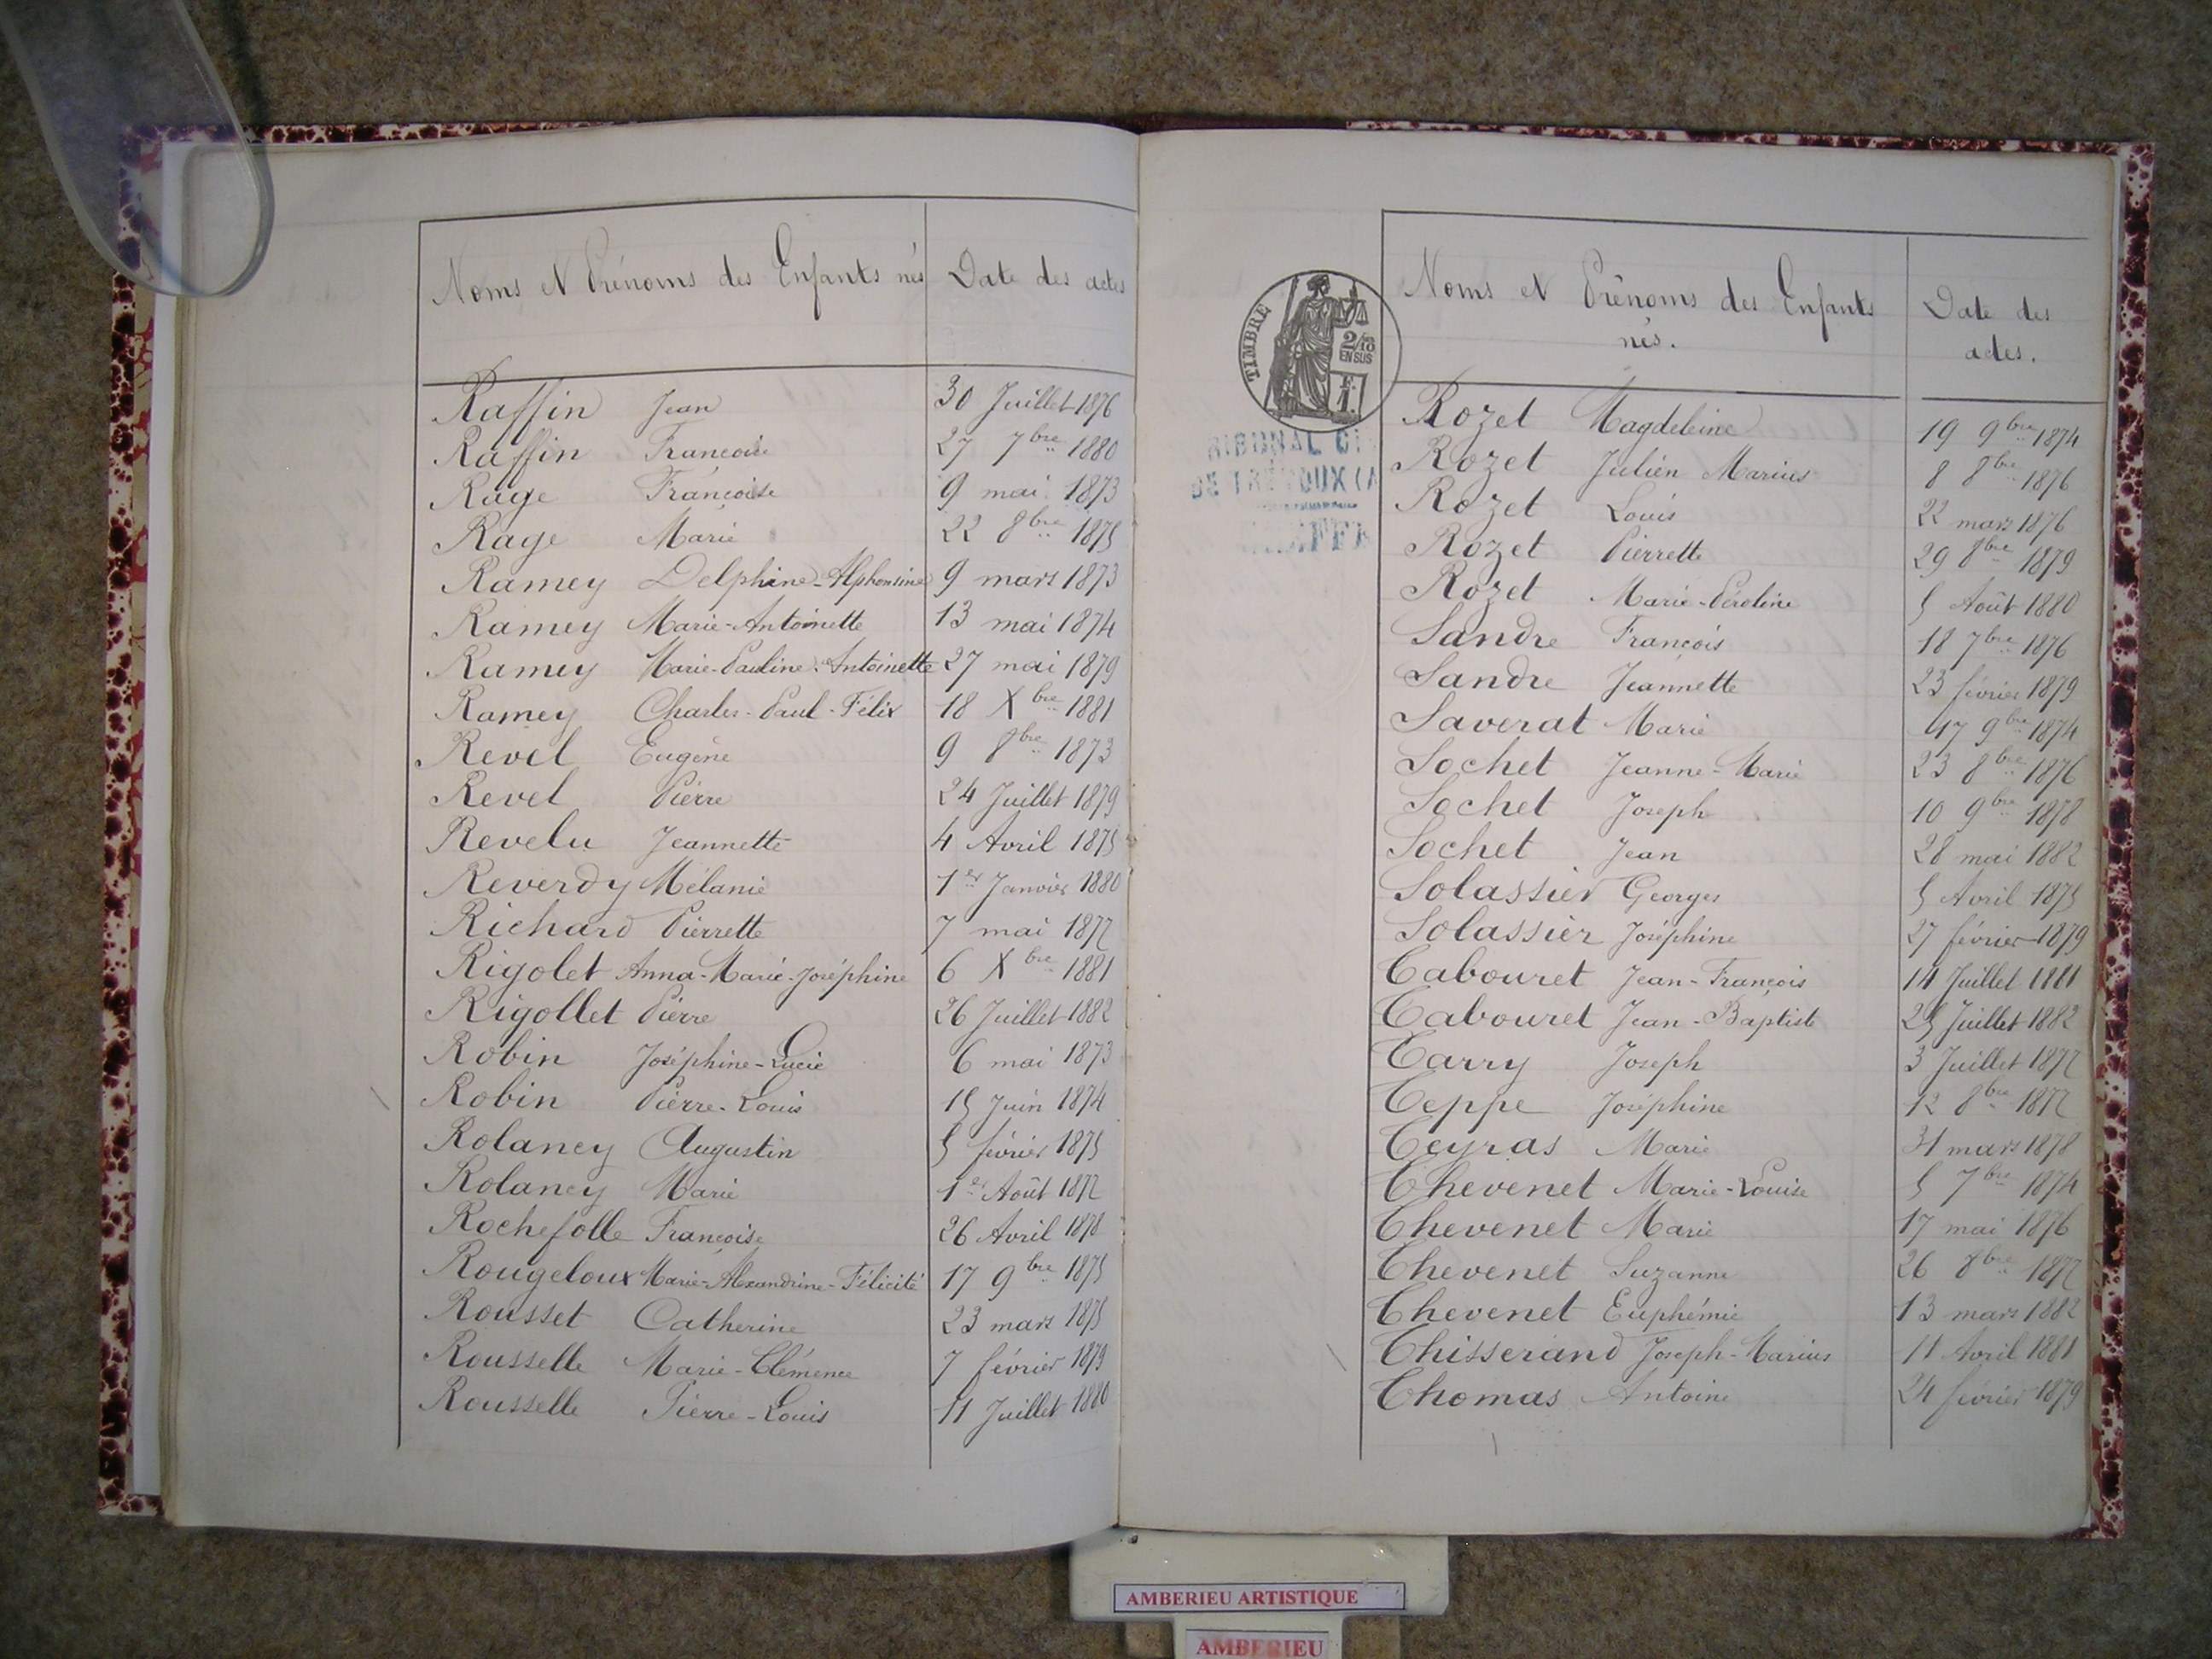 Noms et Prénoms des Enfants nés Date des actes
Raffin Jean 30 Juillet 1876
Raffin Francois 27 7bre 1880
Rage Françoise 9 mai 1873
Rage Marie 22 8bre 1875
Ramey Delphine-Alphonsine 9 mars 1873
Ramey Marie-Antoinette 13 mai 1874
Ramey Marie-Pauline-Antoinette 27 mai 1879
Ramey Charles-Paul-Félix 18 Xbre 1881
Revel Eugène 9 8bre 1873
Revel Pierre 24 Juillet 1879
Revelu Jeannette 4 Avril 1875
Reverdy Mélanie 1er Janvier 1880
Richard Pierrette 7 mai 1877
Rigolet Anna-Marie-Joséphine 6 Xbre 1881
Rigollet Pierre 26 Juillet 1882
Robin Joséphine-Lucie 6 mai 1873
Robin Pierre-Louis 15 Juin 1874
Rolancy Augustin 5 février 1875
Rolancy Marie 1er Août 1877
Rochefolle Françoise 26 Avril 1878
Rougeloux Marie-Alexandrine-Félicité 17 9bre 1875
Rousset Catherine 23 mars 1875
Rousselle Marie-Clémence 7 février 1879
Rousselle Pierre-Louis 11 Juillet 1880
TIMBRE
2/10
EN SUS
F.
1
DE TRÉVOUX (A
Noms et Prénoms des Enfants
nés.
Date des
actes.
Rozet Magdeleine 19 9bre 1874
Rozet Julien Marius 8 8bre 1876
Rozet Louis 22 mars 1876
Rozet Pierrette 29 8bre 1879
Rozet Marie-Péroline 5 Août 1880
Sandre François 18 7bre 1876
Sandre Jeannette 23 février 1879
Saverat Marie 17 9bre 1874
Sochet Jeanne-Marie 23 8bre 1876
Sochet Joseph 10 9bre 1878
Sochet Jean 28 mai 1882
Solassier Georges 5 Avril 1875
Solassier Joséphine 27 février 1879
Tabouret Jean-François 14 Juillet 1881
Tabouret Jean-Baptiste 25 Juillet 1882
Tarry Joseph 3 Juillet 1877
Teppe Joséphine 12 8bre 1877
Teyras Marie 31 mars 1878
Thevenet Marie-Louise 5 7bre 1874
Thevenet Marie 17 mai 1876
Thevenet Suzanne 26 8bre 1877
Thevenet Euphémie 13 mars 1882
Thisserand Joseph-Marius 11 Avril 1881
Thomas Antoine 24 février 1879
AMBERIEU ARTISTIQUE
AMBERIEU